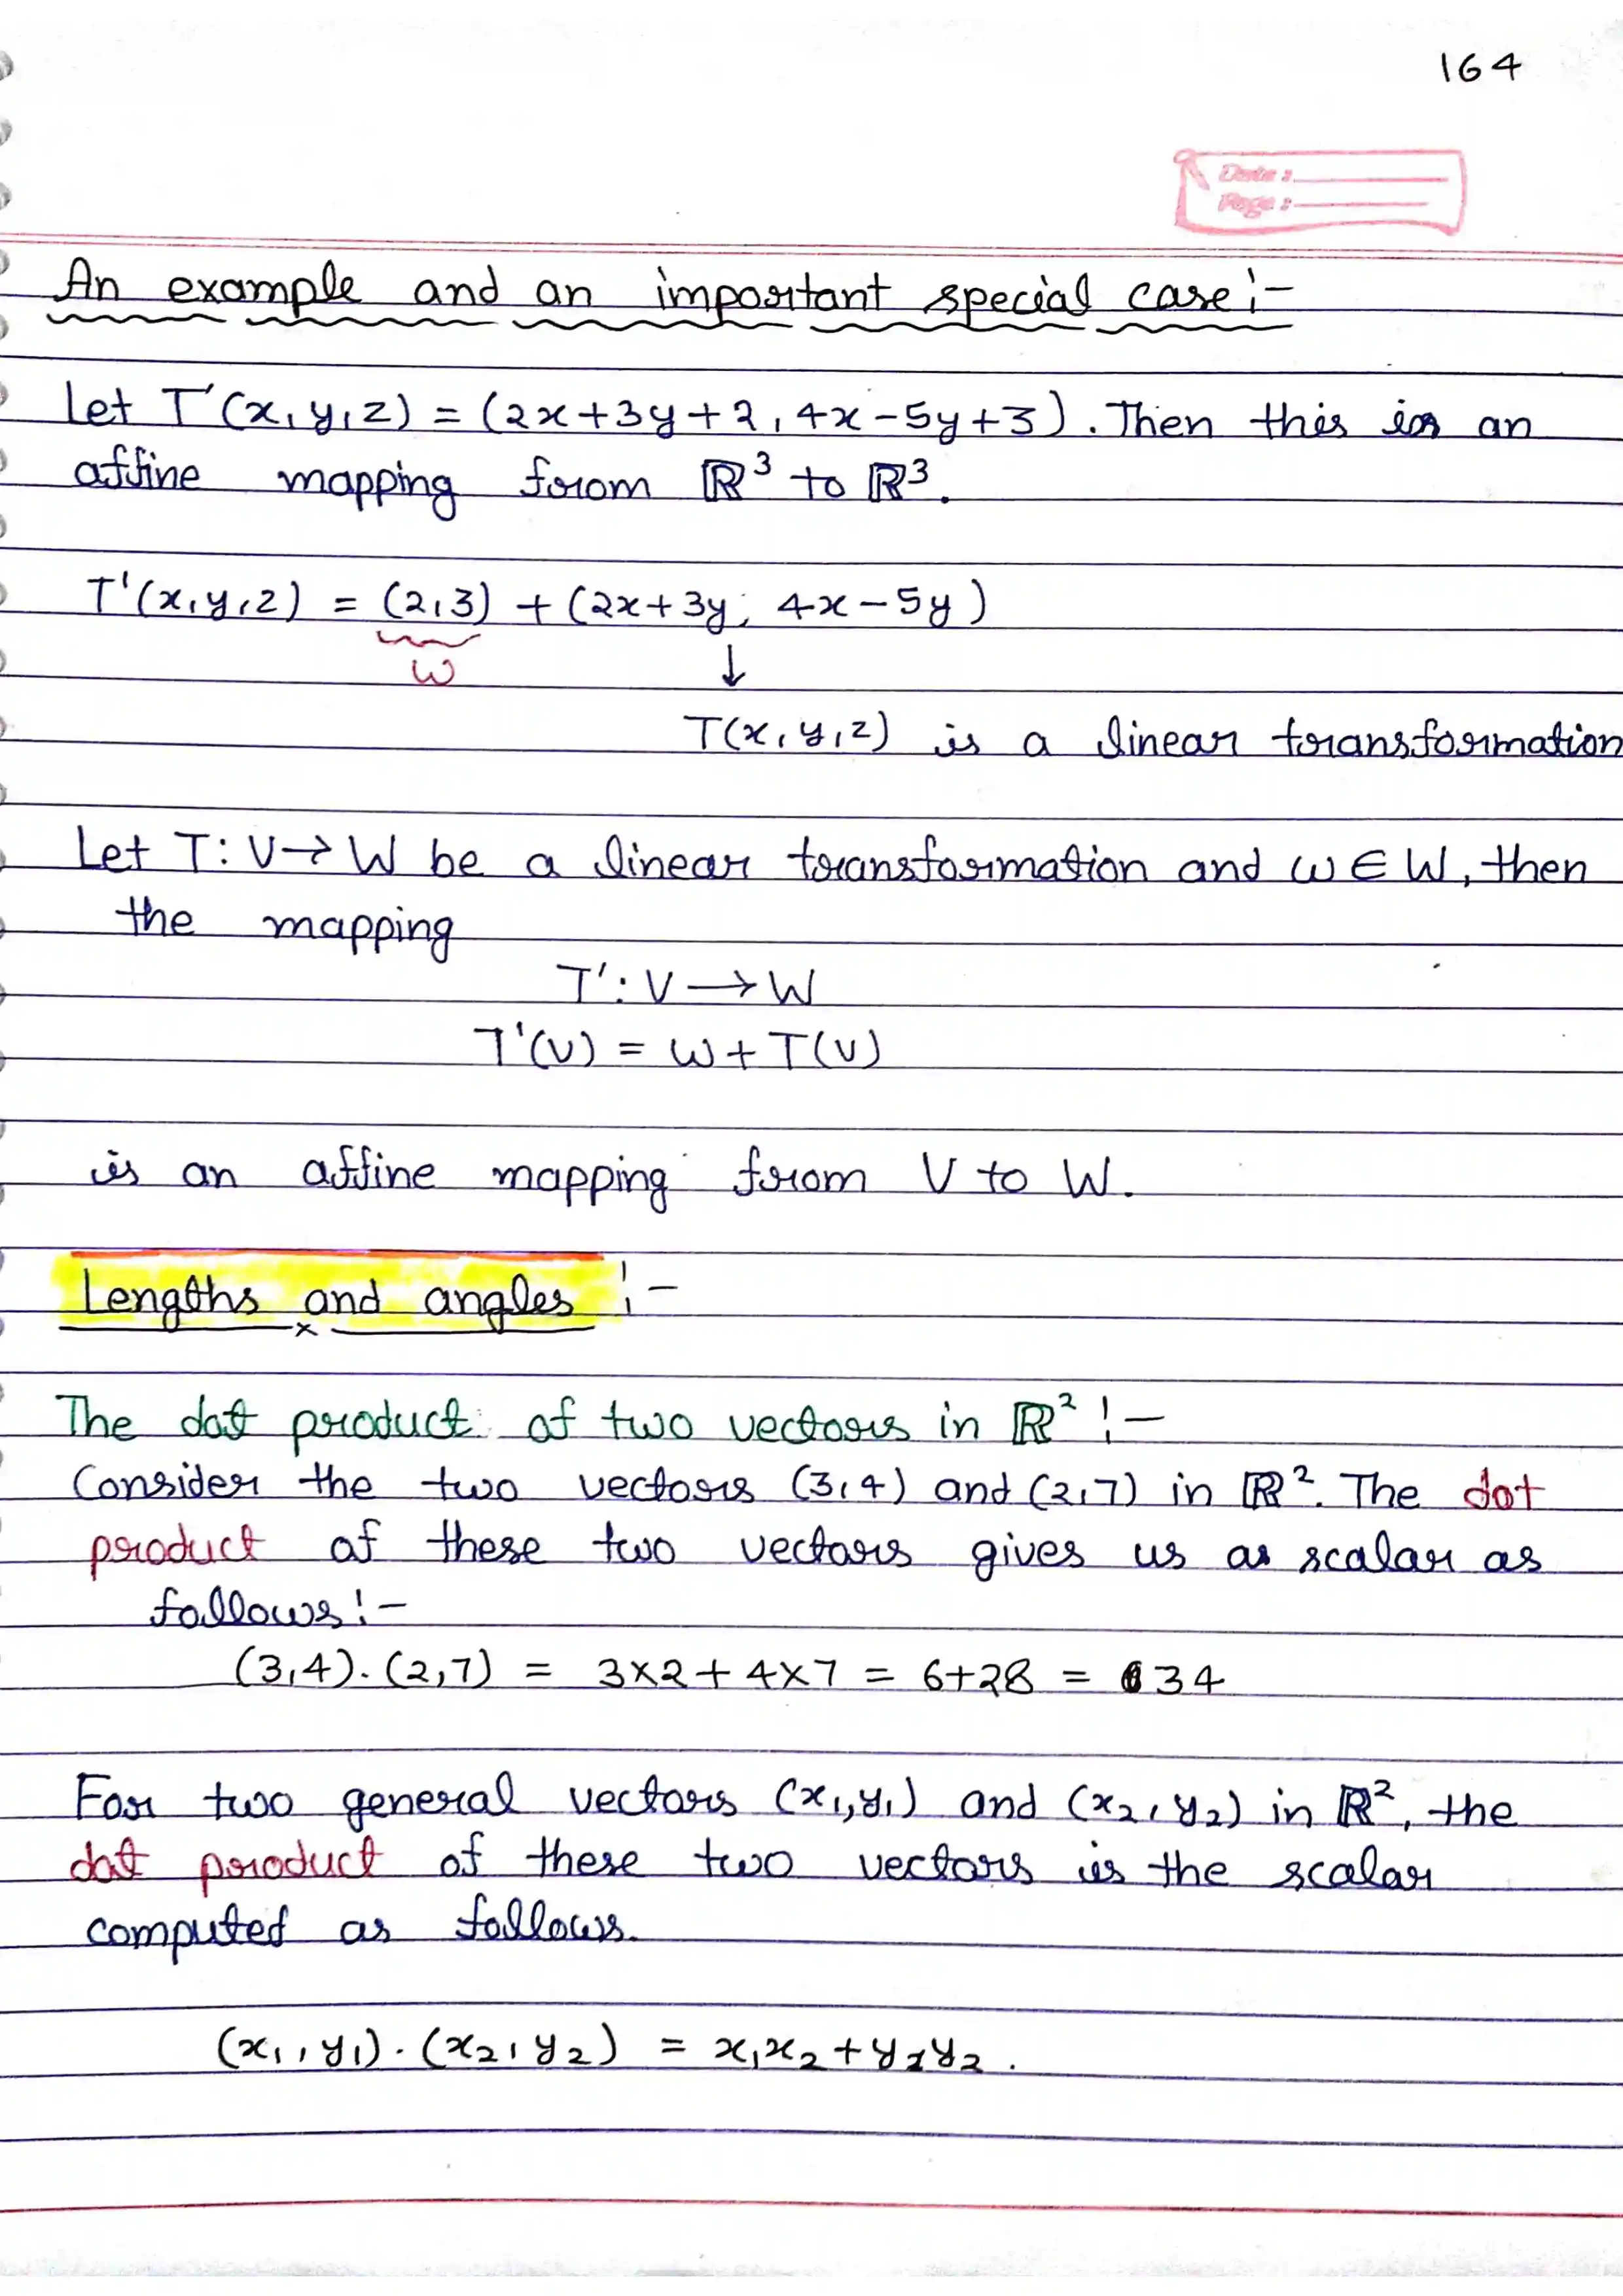 164
Date :
Page :
An example and an important special case :-
Let T'(x, y, z) = (2x+3y+2, 4x-5y+3). Then this is an
affine mapping from ℝ³ to ℝ³.
T'(x, y, z) = (2,3) + (2x+3y, 4x-5y)
w ↓
T(x, y, z) is a linear transformation
Let T: V→W be a linear transformation and w ∈ W, then
the mapping
T': V → W
T'(v) = w + T(v)
is an affine mapping from V to W.
Lengths and angles :-
The dot product of two vectors in ℝ² :-
Consider the two vectors (3,4) and (2,7) in ℝ². The dot
product of these two vectors gives us as scalar as
follows :-
(3,4).(2,7) = 3×2 + 4×7 = 6+28 = 34
For two general vectors (x₁,y₁) and (x₂, y₂) in ℝ², the
dot product of these two vectors is the scalar
computed as follows.
(x₁, y₁).(x₂, y₂) = x₁x₂ + y₁y₂.